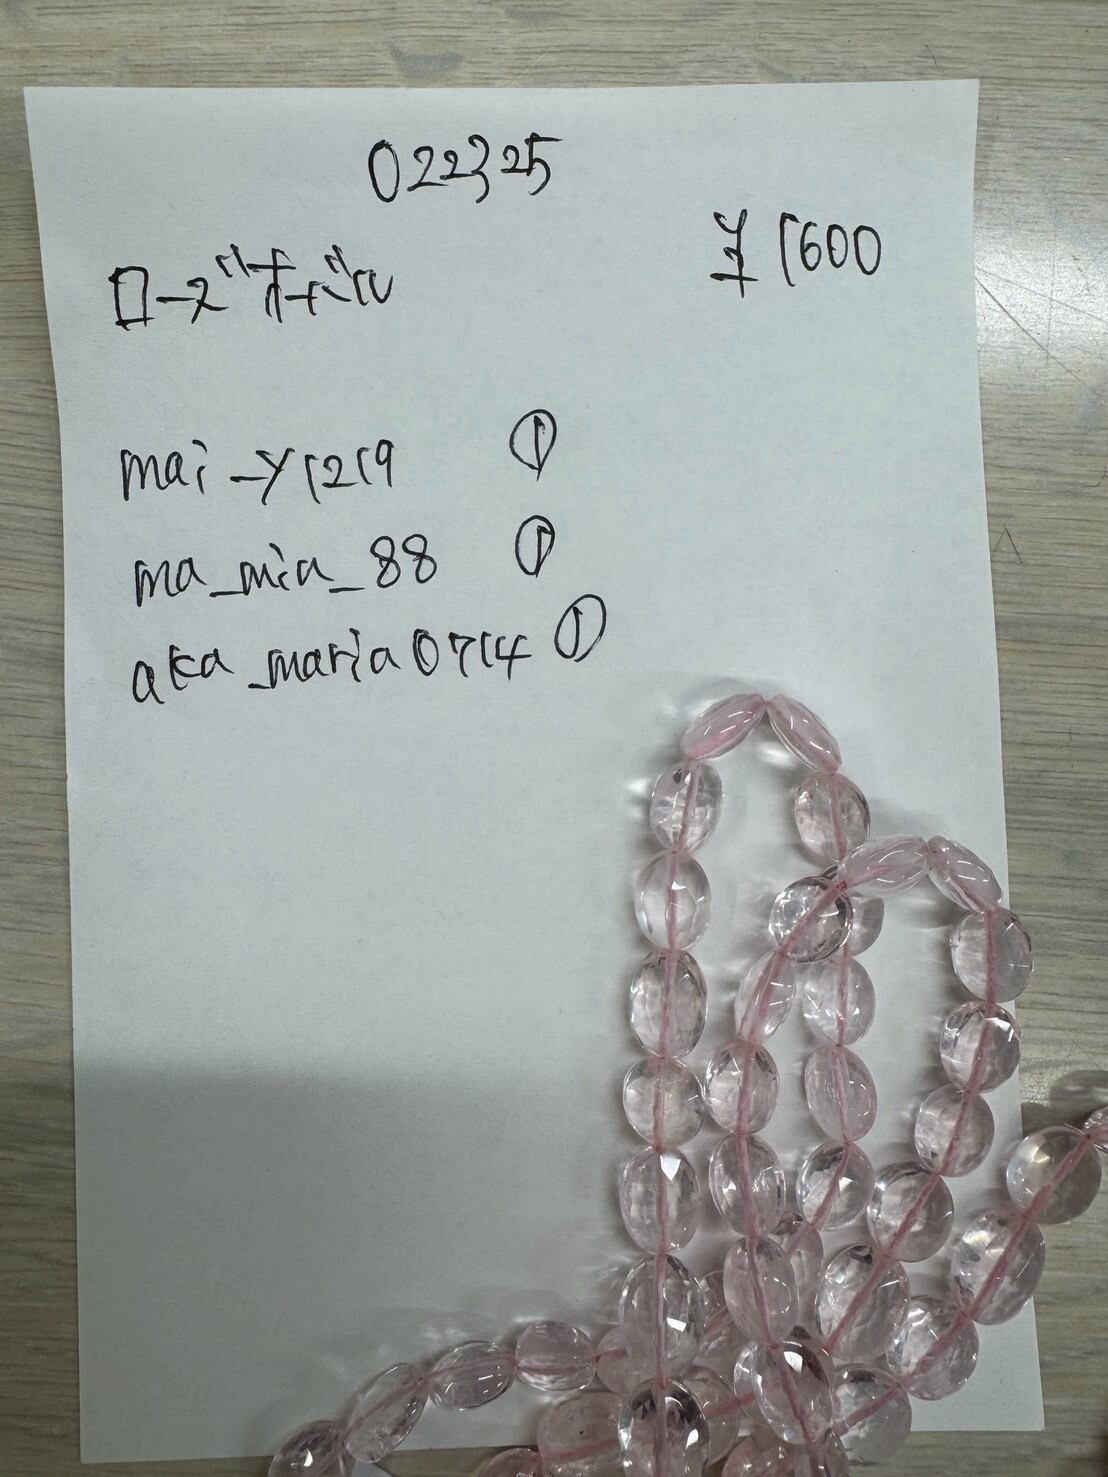 022325
ローズオーバル
¥1600
mai-y1219 ①
ma_mia_88 ①
aka_maria0714 ①